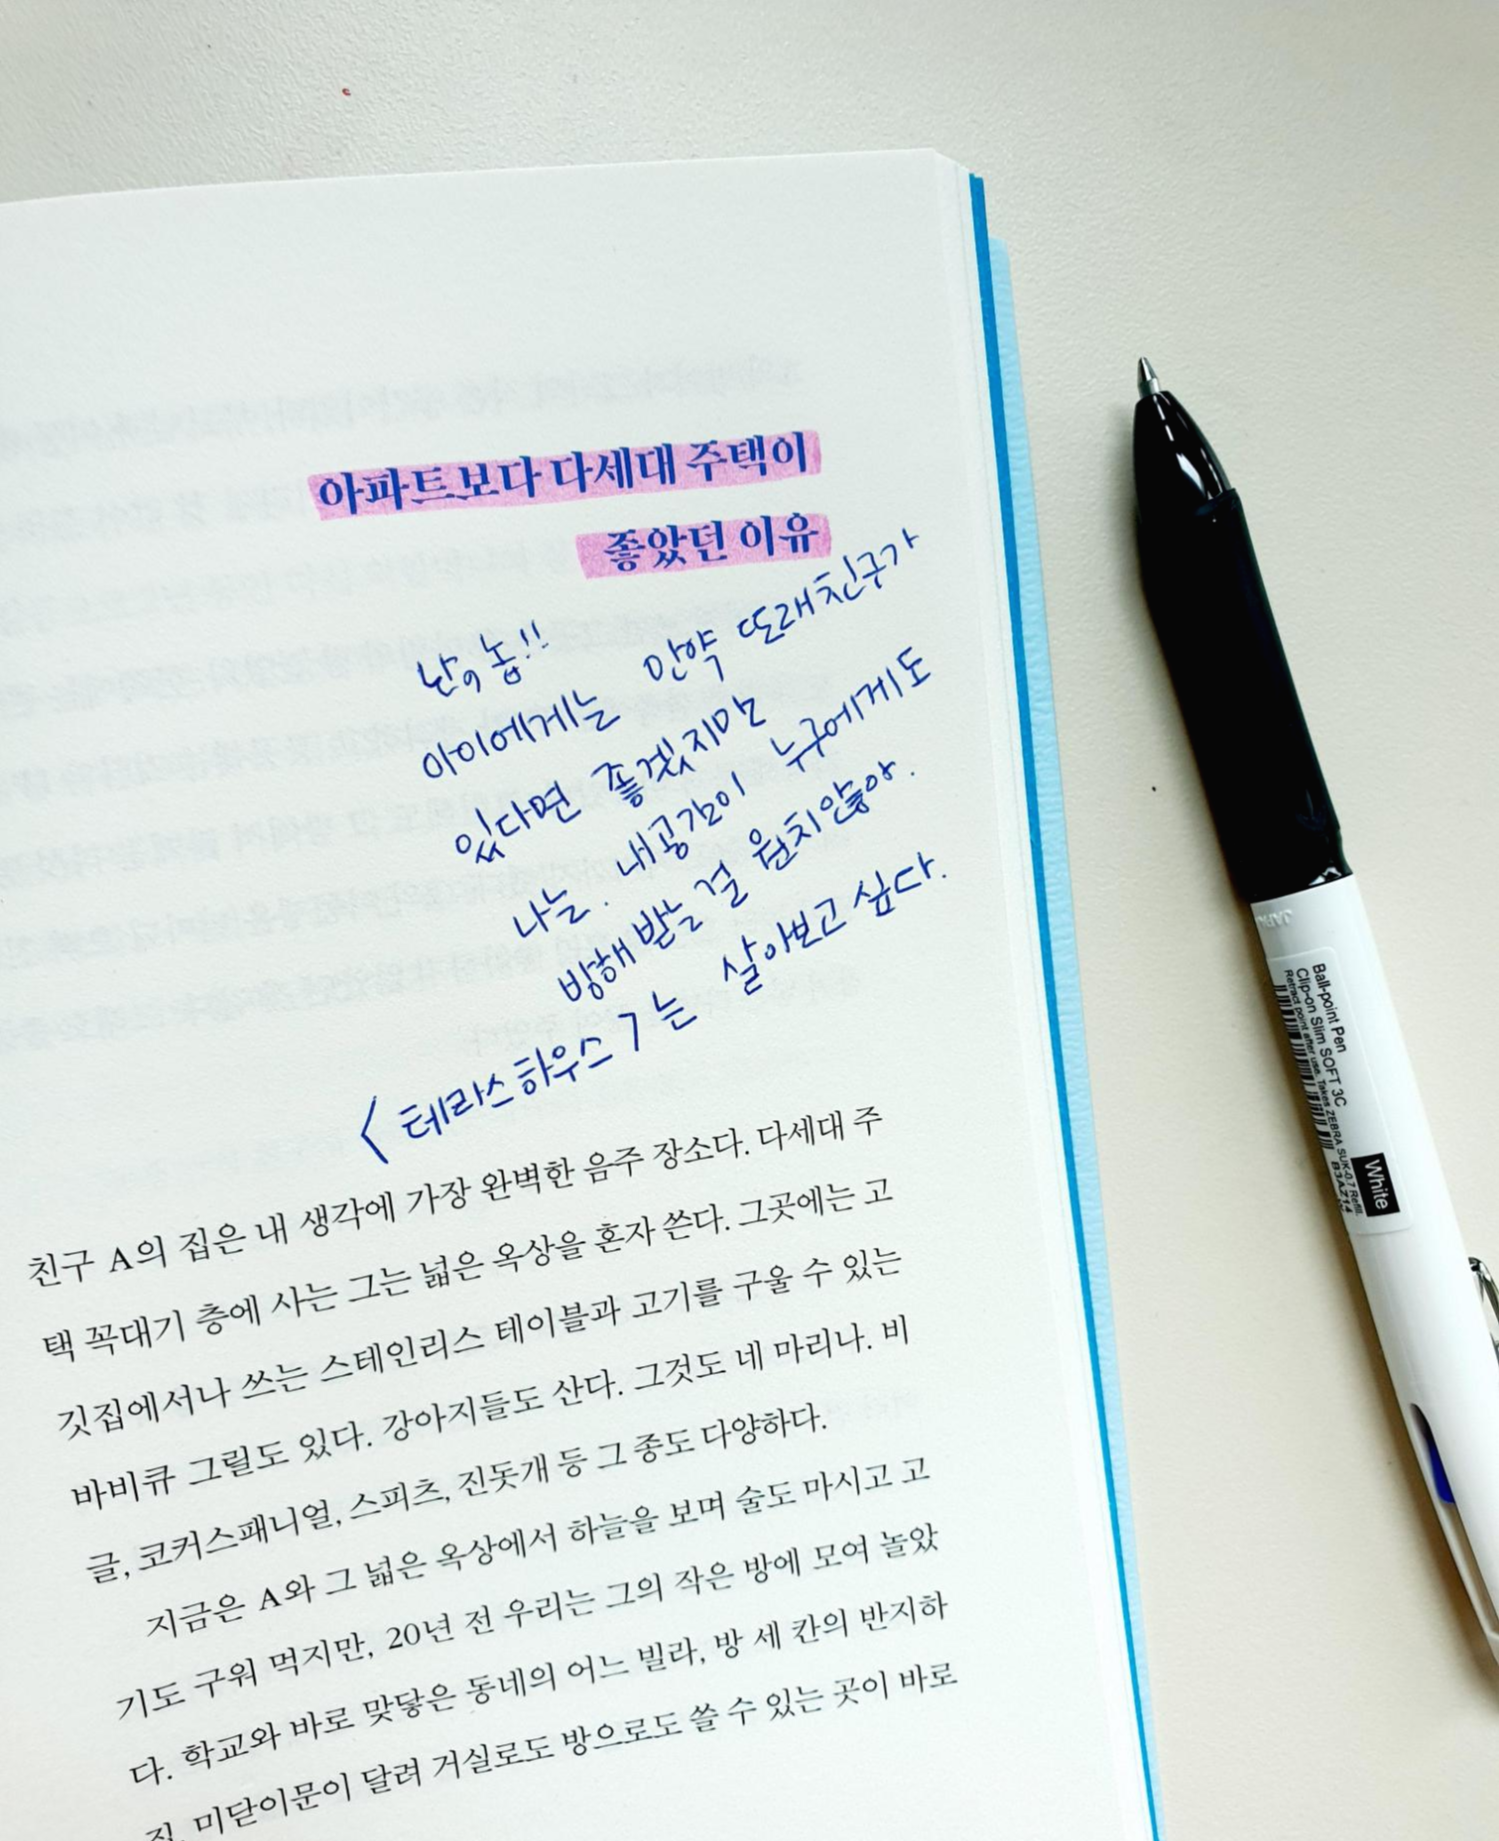 아파트보다 다세대 주택이
좋았던 이유
난 or 놉!!
아이에게는 만약 또래친구가
있다면 좋겠지만
나는. 내공간이 누구에게도
방해 받는 걸 원치않아.
< 테라스하우스 7는 살아보고 싶다.
친구 A의 집은 내 생각에 가장 완벽한 음주 장소다. 다세대 주
택 꼭대기 층에 사는 그는 넓은 옥상을 혼자 쓴다. 그곳에는 고
깃집에서나 쓰는 스테인리스 테이블과 고기를 구울 수 있는
바비큐 그릴도 있다. 강아지들도 산다. 그것도 네 마리나. 비
글, 코커스패니얼, 스피츠, 진돗개 등 그 종도 다양하다.
지금은 A와 그 넓은 옥상에서 하늘을 보며 술도 마시고 고
기도 구워 먹지만, 20년 전 우리는 그의 작은 방에 모여 놀았
다. 학교와 바로 맞닿은 동네의 어느 빌라, 방 세 칸의 반지하
집. 미닫이문이 달려 거실로도 방으로도 쓸 수 있는 곳이 바로
JAPA
Ball-point Pen
Clip-on Slim SOFT 3C
Retract point after use. Takes ZEBRA SUK-0.7 Refill.
B3AZ14
White